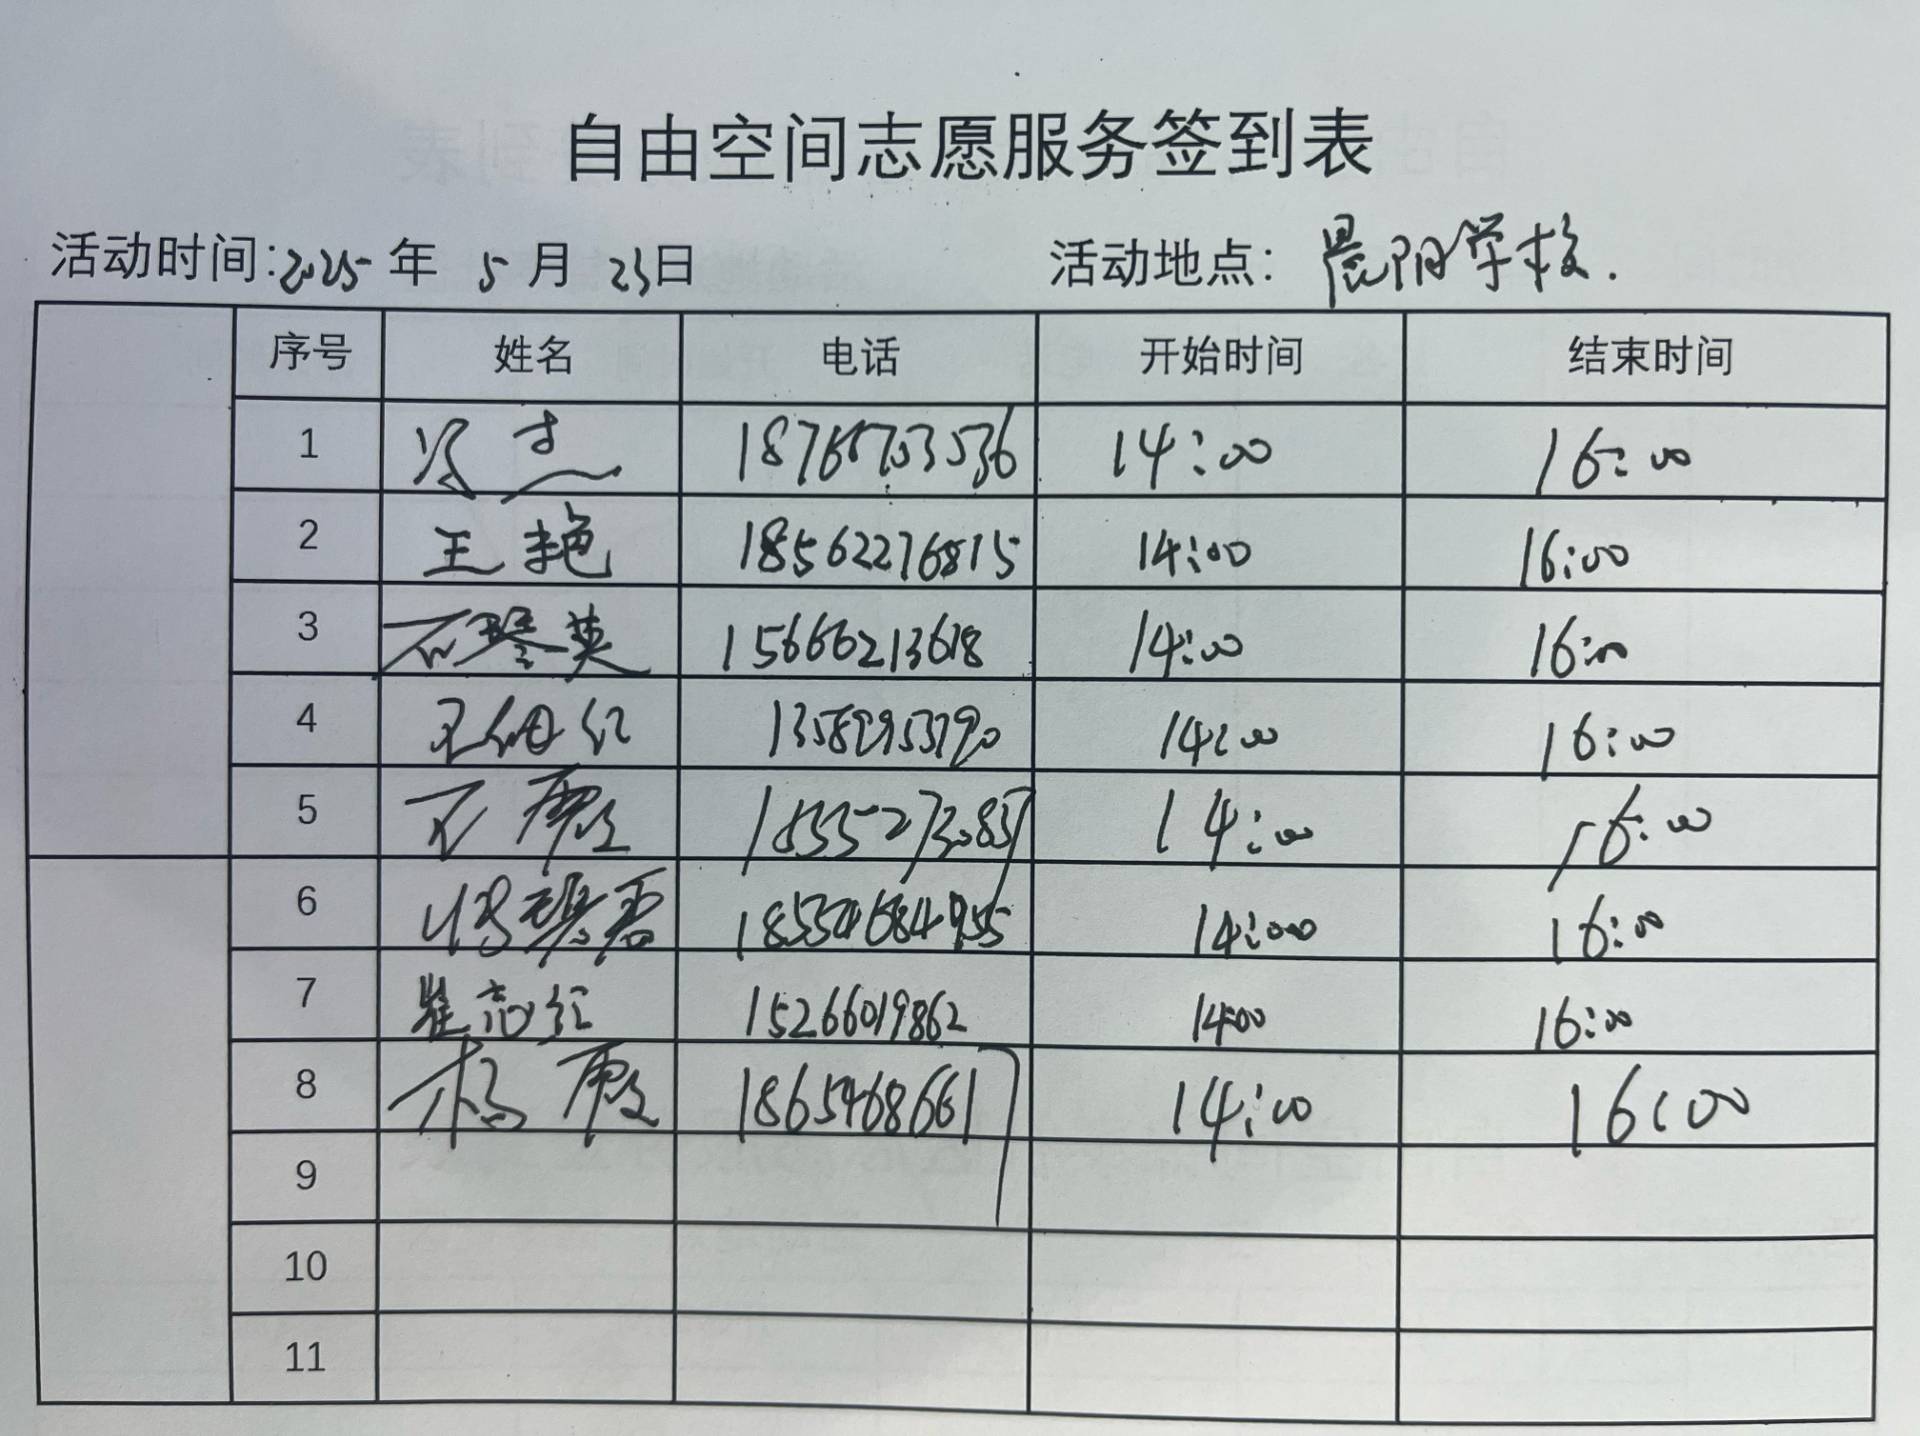 自由空间志愿服务签到表
活动时间:2025年 5月 23日 活动地点: 晨阳学校.
序号 姓名 电话 开始时间 结束时间
1 14:00 16:00
2 王艳 18562276815 14:00 16:00
3 石琴英 15666213618 14:00 16:00
4 14:00 16:00
5 14:00 16:00
6 14:00 16:00
7 崔志红 15266019862 14:00 16:00
8 杨霞 18654686617 14:00 16:00
9
10
11